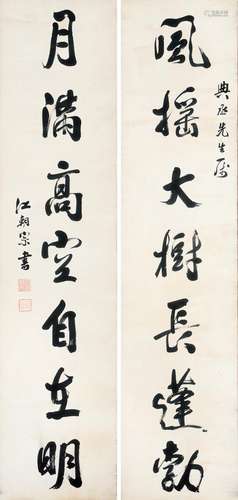 典丞先生属
風搖大樹長蓬勃
月滿高空自在明
江朝宗書